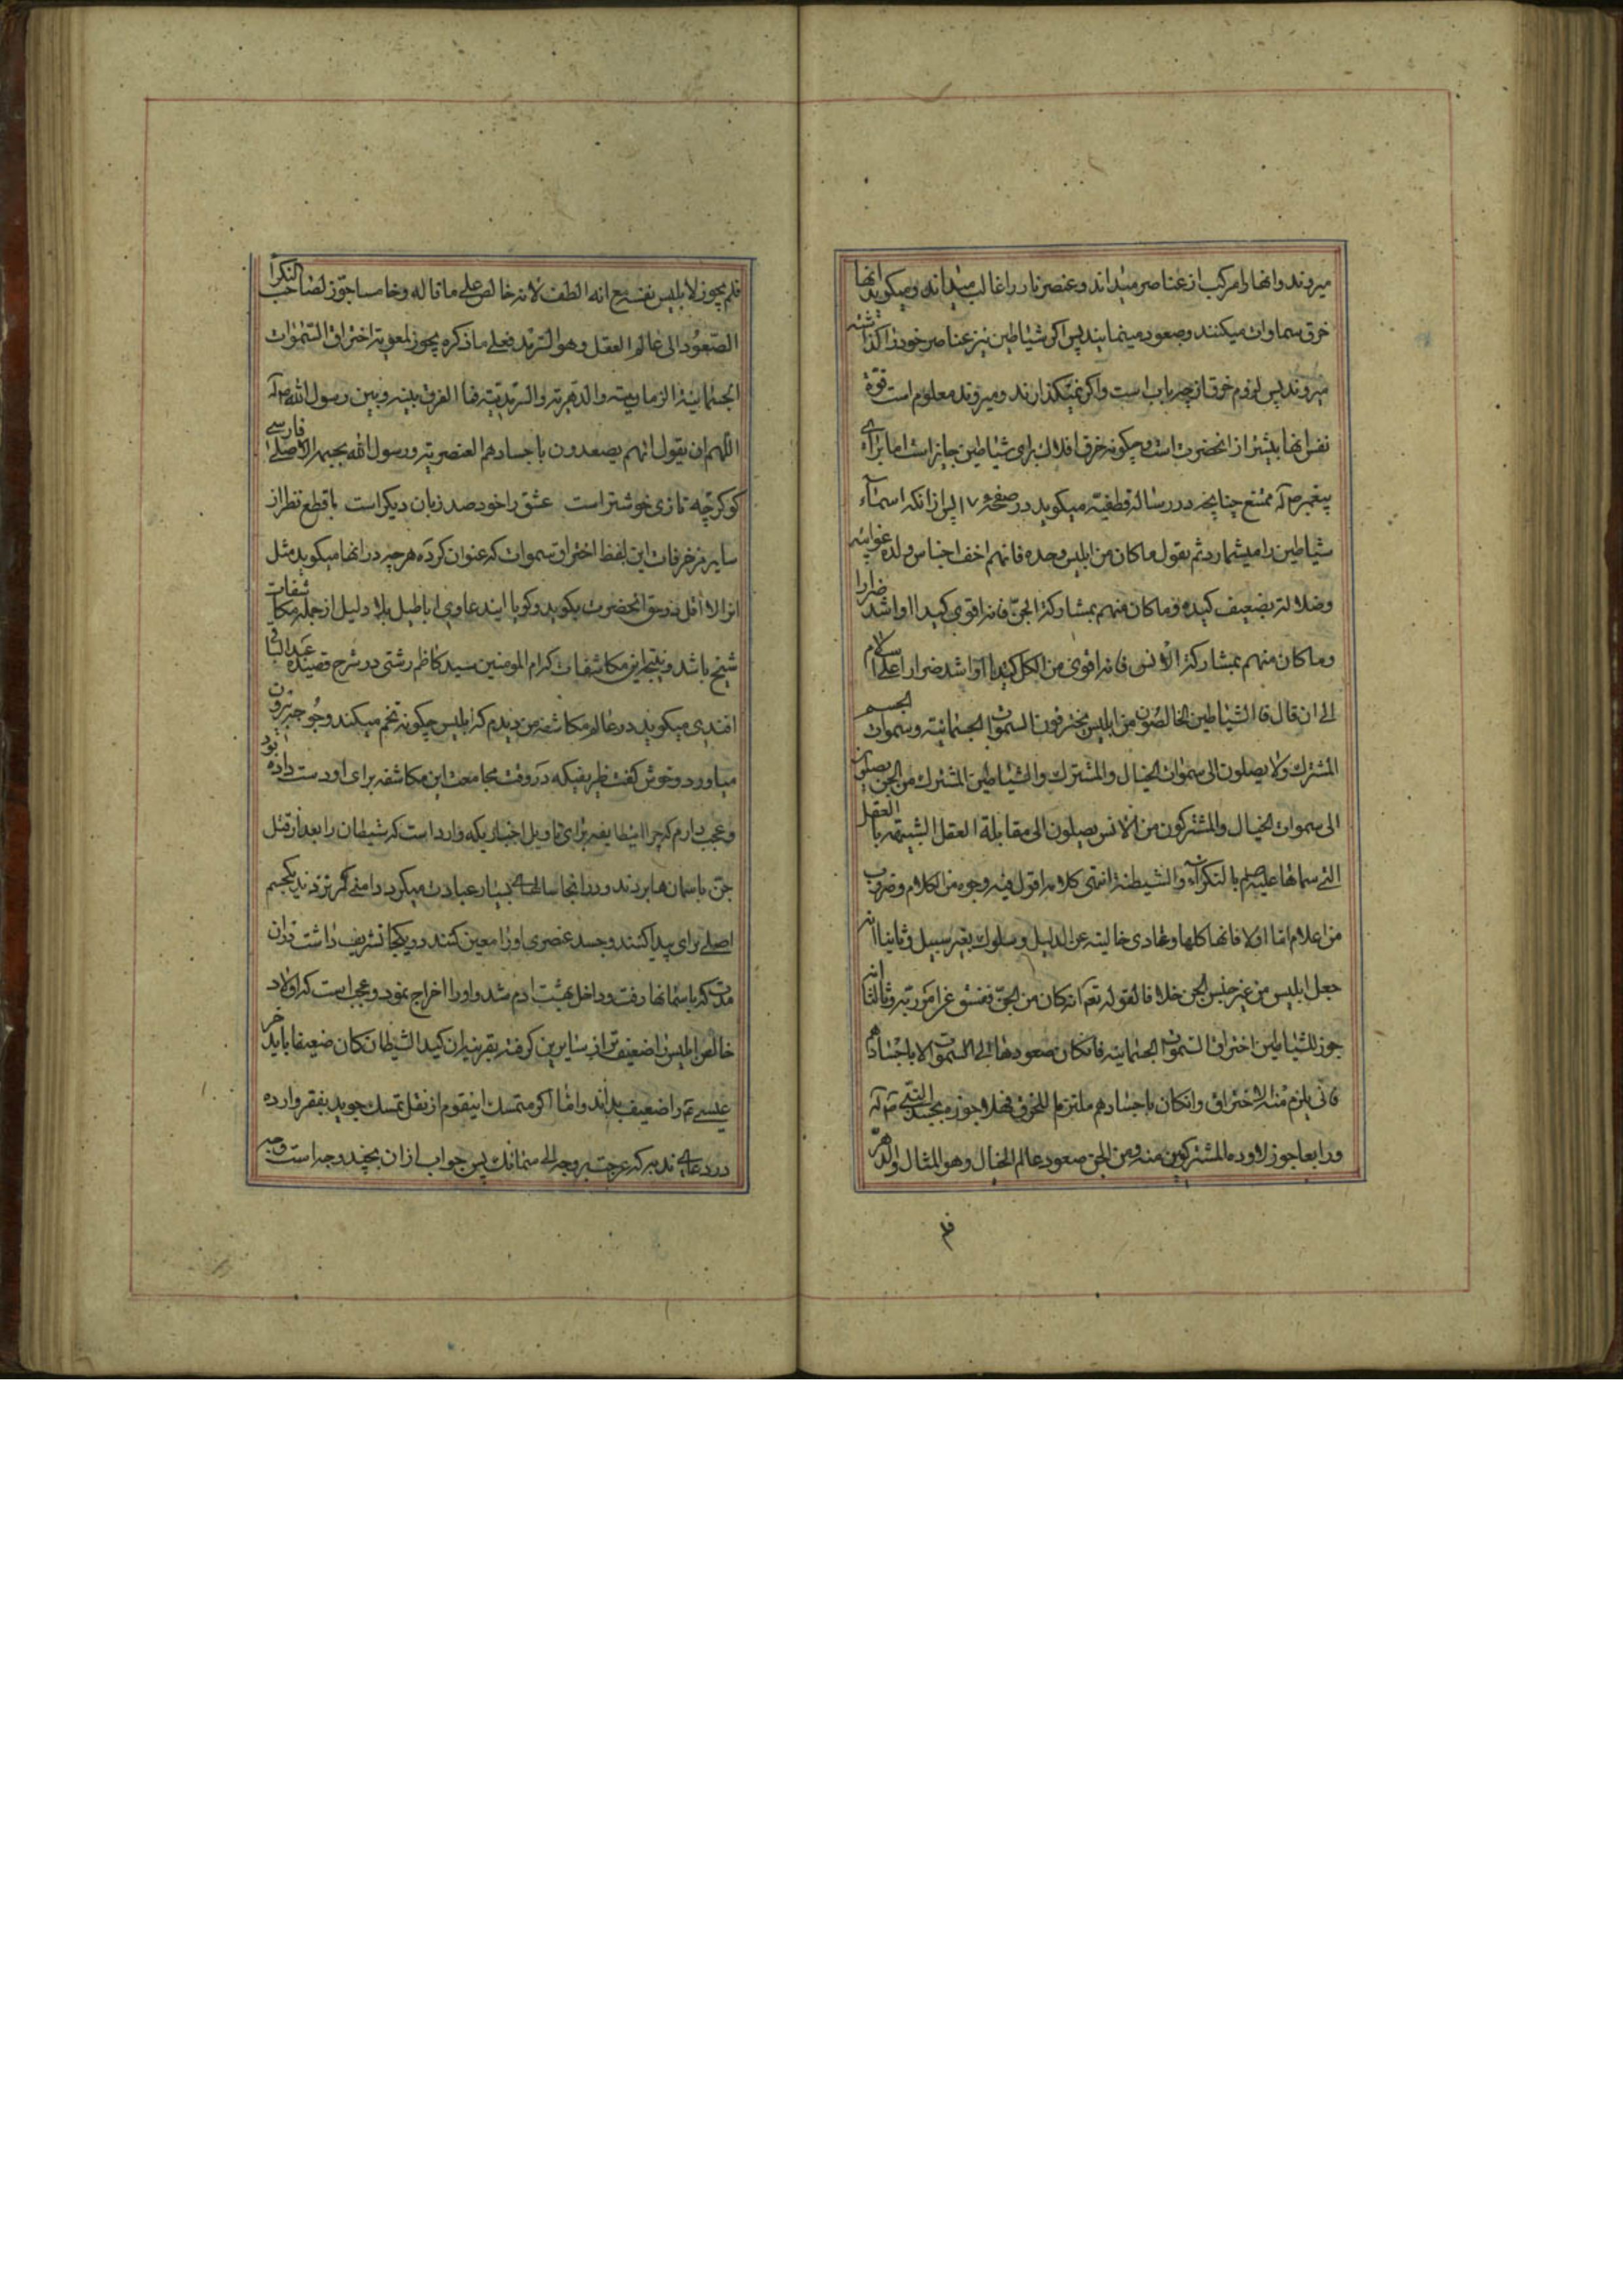 میروند و انها را مرکب از عناصر میدانند و عنصر نار را غالب میدانند و میکوید انها
خرق سماوات میکنند و صعود مینمایند پس اکر شیاطین نیز عناصر خود را کذاشته
میروند پس لزوم خرق از چه باب است و اکر نمیکذارند و میروند معلوم است قوة
نفس انها بیشتر از انحضرت است و چکونه خرق افلاک برای شیاطین جایز است اما برای
پیغمبر ص آله ممتنع چنانچه در رساله قطیفیه میکوید در صفحه ۱۷ پس از انکه اسماء
شیاطین را میشمارد ثم یقول ما کان من ابلیس وحده فانهم اخف اجناس ولده غوایته
وضلالته بضعیف کیده وما کان منهم بمشارکة الجن فانه اقوی کیدا او اشد ضرارا
وما کان منهم بمشارکة الانس فانه اقوی من الکل کیدا او اشد ضرارا علی الاسلام
الی ان قال فا الشیاطین الخالصون من ابلیس یخترقون السموات الجسمانیته وسموات الجسم
المشترک ولا یصلون الی سموات الخیال والمشترک والشیاطین المشترک من الجن یصلون
الی سموات الخیال والمشترکون من الانس یصلون الی مقابلة العقل الشبیهه با العقل
التی سماها علیه السلم بالنکراء والشیطنة انتهی کلامه اقول فیه وجوه من الکلام وضروب
من اعلام اما اولا فانها کلها دعاوی خالیته عن الدلیل وسلوک بغیر سبیل وثانیا انه
جعل ابلیس من غیر جنس الجن خلافا لقوله تعم انه کان من الجن ففسق عن امر ربه وثالثا انه
جوز للشیاطین اختراق السموات الجسمانیته فانکان صعودها الی السموات لا باجسادهم
فانی یلزم منه الاختراق وانکان باجسادهم ملتزما للخرق فهلا جوزه بجسد النبی ص آله
ورابعا جوز لاولاده المشترکین منه ومن الجن صعود عالم الخیال وهو المثال والدهر
فلم
فلم یجوز لابلیس نفسه مع انه الطف لانه خالص علی ما قاله وخامسا جوز لصاحب النکرا
الصعود الی عالم العقل وهو السرمد فعلی ما ذکره یجوز لمعویة اختراق السموات
الجسمانیة الزمانیته والدهریته والسرمدیته فما الفرق بینه وبین رسول الله ص آله
اللهم ان یقول انهم یصعدون باجسادهم العنصریته ورسول الله بجسمه الاصلی فارسی
کو کرچه تازی خوشتر است عشق را خود صد زبان دیکر است با قطع نظر از
سایر مزخرفات این لفظ اختراق سموات که عنوان کرده هر چه در انها میکوید مثل
انرا لا اقل در حق انحضرت بکوید و کویا ایندعاوی اباطیل بلا دلیل از جمله مکاشفات
شیخ باشد و نتیجه این مکاشفات کرام المومنین سید کاظم رشتی در شرح قصیده عبدالباقی
افندی میکوید در عالم مکاشفه من دیدم که ابلیس چکونه تخم میکند و جوجه بیرون
میاورد و خوش کفت ظریفیکه در وقت مجامعت این مکاشفه برای او دست داده بود
و عجب دارم که چرا ایطایفه برای تاویل اخباریکه وارد است که شیطان را بعد از قتل
جن باسمان ها بردند و در انجا سالهای بسیار عبادت میکرد دامنی کمر نزدند یکجسم
اصلی برای پیدا کنند و جسد عنصری او را معین کنند در یکجا تشریف داشت در ان
مدت که باسمانها رفت و داخل بهشت ادم شد و او را اخراج نمود و عجب است که اولاد
خالص ابلیس را ضعیف تر از سایرین کرفته بقرینه ان کید الشیطان کان ضعیفا باید خر
عیسی ع را ضعیف بداند و اما اکر متمسک اینقوم از نقل تمسک جوید بفقره وارده
در دعای ندبه که عرجت بروحه الی سمائک پس جواب از ان بچند وجه است وجه